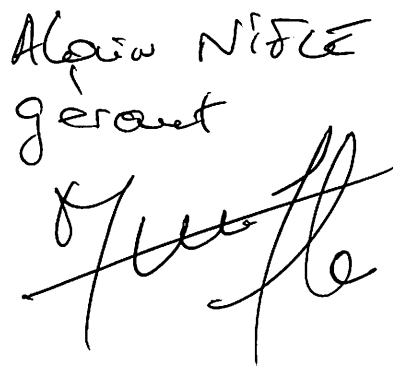 Alain NiFLE
gérant